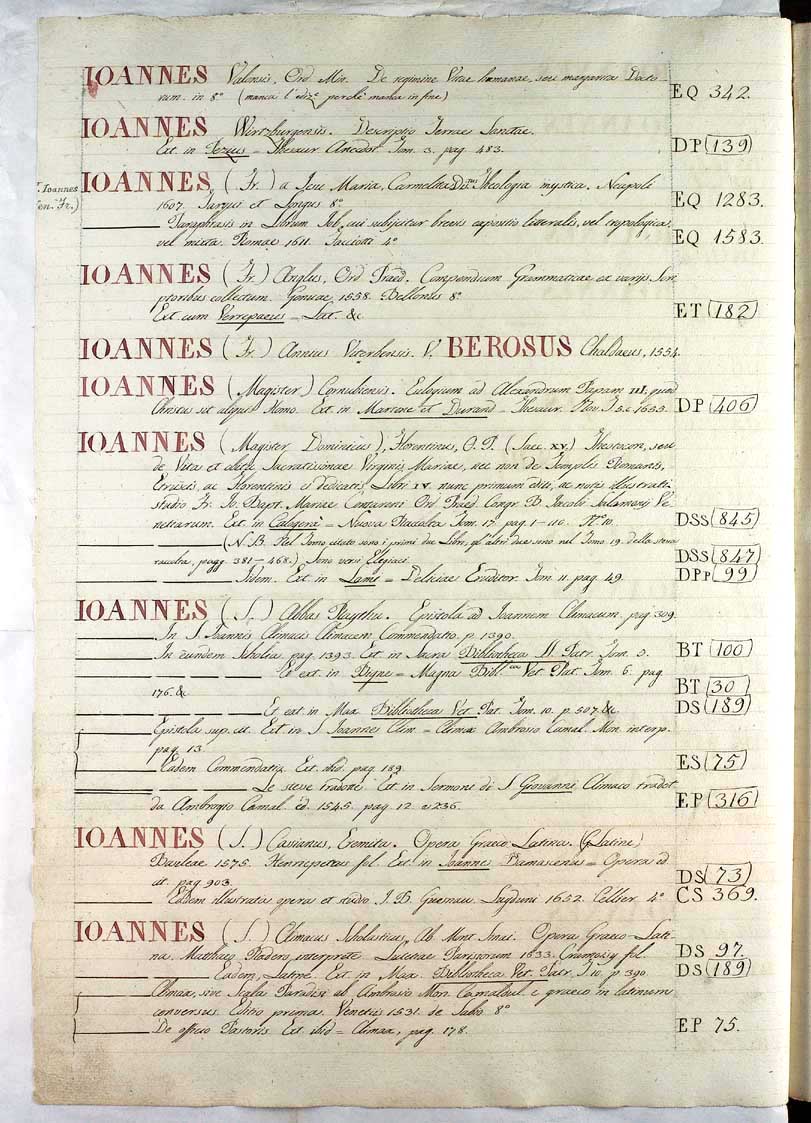 IOANNES Valensis, Ord. Min. De regimine Vitae humanae, seu margarita Docto-
rum. in 8° (manca l'ediz.e perchè manca in fine) EQ 342.
IOANNES Wirtzburgensis. Descriptio Terrae Sanctae.
Ext. in Pezius = Thesaur. Anecdot. Tom. 3. pag. 483. DP (139)
IOANNES (Fr.) a Jesu Maria, Carmelita Dis.tus Theologia mystica. Neapoli
1607. Jargus et Longus 8° EQ 1283.
Paraphrasis in Librum Job, cui subijcitur brevis expositio litteralis, vel tropologica,
vel mixta. Romae 1611. Facciotti 4° EQ 1583.
IOANNES (Fr.) Anglus, Ord. Praed. Compendium Grammaticae ex varijs Scri-
ptoribus collectum. Genuae, 1558. Bellonus 8°
Ext. cum Verrepaeus = Lat. &c ET (182)
IOANNES (Fr.) Annius Viterbensis. V. BEROSUS Chaldaeus, 1554.
IOANNES (Magister) Cornubiensis. Eulogium ad Alexandrum Papam III. quod
Christus sit aliquis Homo. Ext. in Martene et Durand = Thesaur. Nov. T. 5. c. 1655. DP (406)
IOANNES (Magister Dominicus), Florentinus, O. P. (Saec. XV.) Theotocon, seu
de Vita et obitu Sacratissimae Virginis Mariae, nec non de Templis Romanis,
Etruscis, ac Florentinis ei Dedicatis, Libri IV. nunc primum editi, ac notis illustrati
studio Fr. Jo. Bapt. Mariae Contareni Ord. Praed. Congr. B. Jacobi Salomonij Ve-
netiarum. Ext. in Calogerà = Nuova Raccolta Tom. 17. pag. 1-116. N.° 10. DSS (845)
(N.B. Nel Tomo citato sono i primi due Libri, gl'altri due sono nel Tomo 19. della stessa
raccolta, pagg. 381-468.) Sono versi Elegiaci. DSS (847)
Idem. Ext. in Lami = Deliciae Eruditor. Tom. 11. pag. 49. DPp (99)
IOANNES (S.) Abbas Raythu. Epistola ad Ioannem Climacum. pag. 309.
In S. Joannis Climacis Climacem Commendatio. p. 1390.
In eundem Scholia. pag. 1393. Ext. in Sacra Bibliotheca SS. Patr. Tom. 3. BT (100)
Et ext. in Bigne = Magna Bibl.ca Vet. Pat. Tom. 6. pag.
176. &c BT (30)
Et ext. in Max. Bibliotheca Vet. Pat. Tom. 10. p. 507. &c. DS (189)
Epistola sup. cit. Ext. in S. Joannes Clim. = Climax Ambrosio Camal. Mon. interp.
pag. 13.
Eadem Commendatio. Ext. ibid. pag. 189. ES (75)
Le stesse tradotte. Ext. in Sermoni di S. Giovanni Climaco tradot.
da Ambrogio Camal. ed. 1545. pag. 12. e 236. EP (316)
IOANNES (S.) Cassianus, Eremita. Opera Graeco Latina. (G. Latine)
Basileae 1575. Henrepetrus fol. Ext. in Joannes Damascenus = Opera ed.
cit. pag. 903. DS (73)
Eadem illustrata opera et studio J. B. Guesnau. Lugduni 1652. Cellier 4° CS 369.
IOANNES (S.) Climacus Scholasticus, Ab. Mont. Sinai. Opera Graeco-Lati-
na. Matthaeo Radero interprete. Lutetiae Parisiorum 1633. Cramoisy fol. DS 97.
Eadem, Latine. Ext. in Max. Bibliotheca Vet. Patr. T. 10. p. 390. DS (189)
Climax, sive Scala Paradisi ab Ambrosio Mon. Camaldul. e graeco in latinum
conversus. Editio primus. Venetiis 1531. de Sabio 8°
De officio Pastoris. Ext. ibid. = Climax, pag. 178. EP 75.